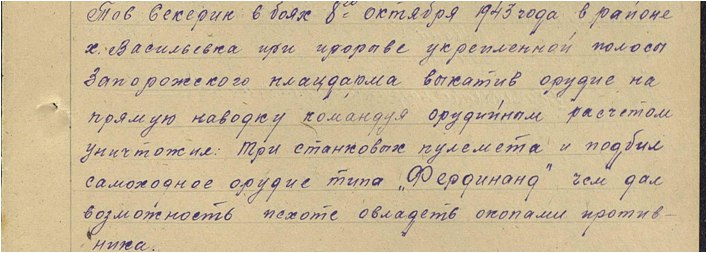 Тов Секерин в боях 8го октября 1943 года в районе
х. Васильевка при прорыве укрепленной полосы
Запорожского плацдарма выкатив орудие на
прямую наводку командуя орудийным расчетом
уничтожил: три станковых пулемета и подбил
самоходное орудие типа „Фердинанд" чем дал
возможность пехоте овладеть окопами против-
ника.